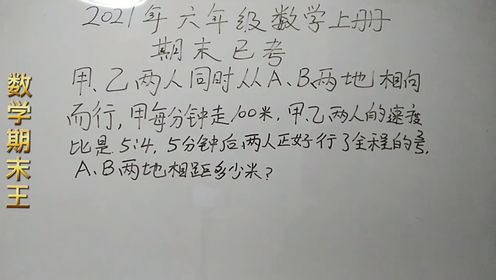 2021年六年级数学上册
期末已考
甲、乙两人同时从A、B两地相向
而行,甲每分钟走100米,甲、乙两人的速度
比是5:4,5分钟后,两人正好行了全程的
A、B两地相距多少米?
数学期末王